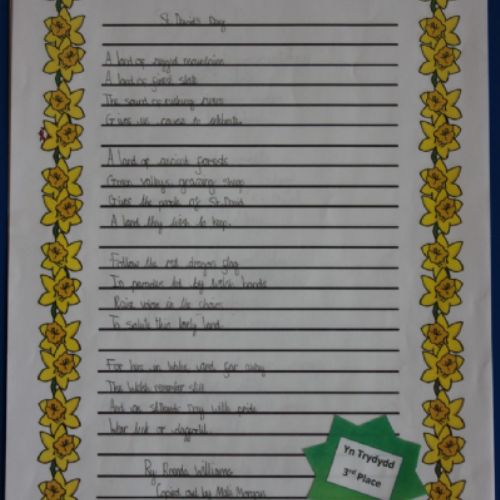 St. David's Day
A land of rugged mountains
A land of great slate
The sound of rushing rivers
Gives us cause to celebrate.
A land of ancient forests
Green valleys, grazing sheep
Gives the people of St. David
A land they wish to keep.
Follow the red dragon flag
In parades led by Welsh bands
Raise voices in the chorus
To salute this lovely land.
For here in Wales and far away
The Welsh remember still
And on St. Davids Day with pride
Wear leek or daffodil.
By: Brenda Williams
Copied out by Morgan
Yn Trydydd
3rd Place